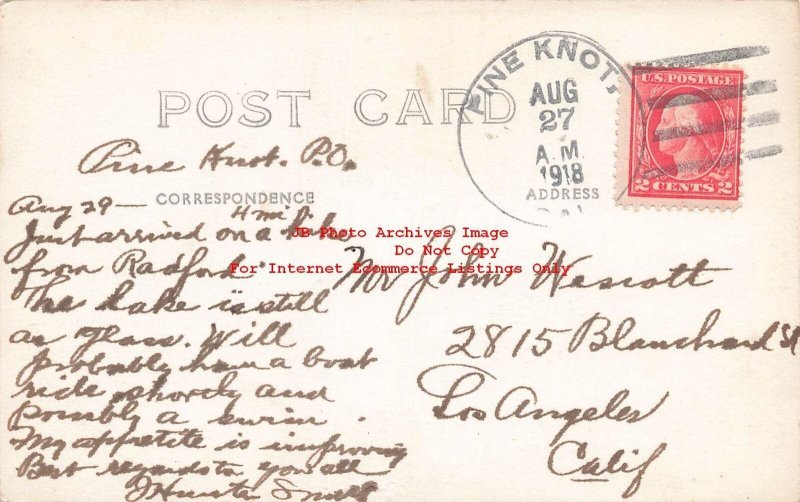 POST CARD
PINE KNOT,
AUG
27
A.M.
1918
U.S. POSTAGE
2 CENTS 2
Pine Knot. P.O.
CORRESPONDENCE
ADDRESS
Aug 29 —
4 mi
Just arrived on a hike
from Radford.
The Lake is still
as glass. Will
probably have a boat
ride shortly and
possibly a swim.
My appetite is improving
Best regards to you all
J Hunter
Mr John Wescott
2815 Blanchard St
Los Angeles
Calif
JB Photo Archives Image
Do Not Copy
For Internet Ecommerce Listings Only